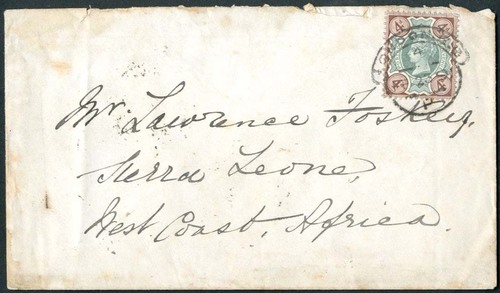 4d 4d
4d 4d
Mr. Lawrence Foskey,
Sierra Leone,
West Coast, Africa.